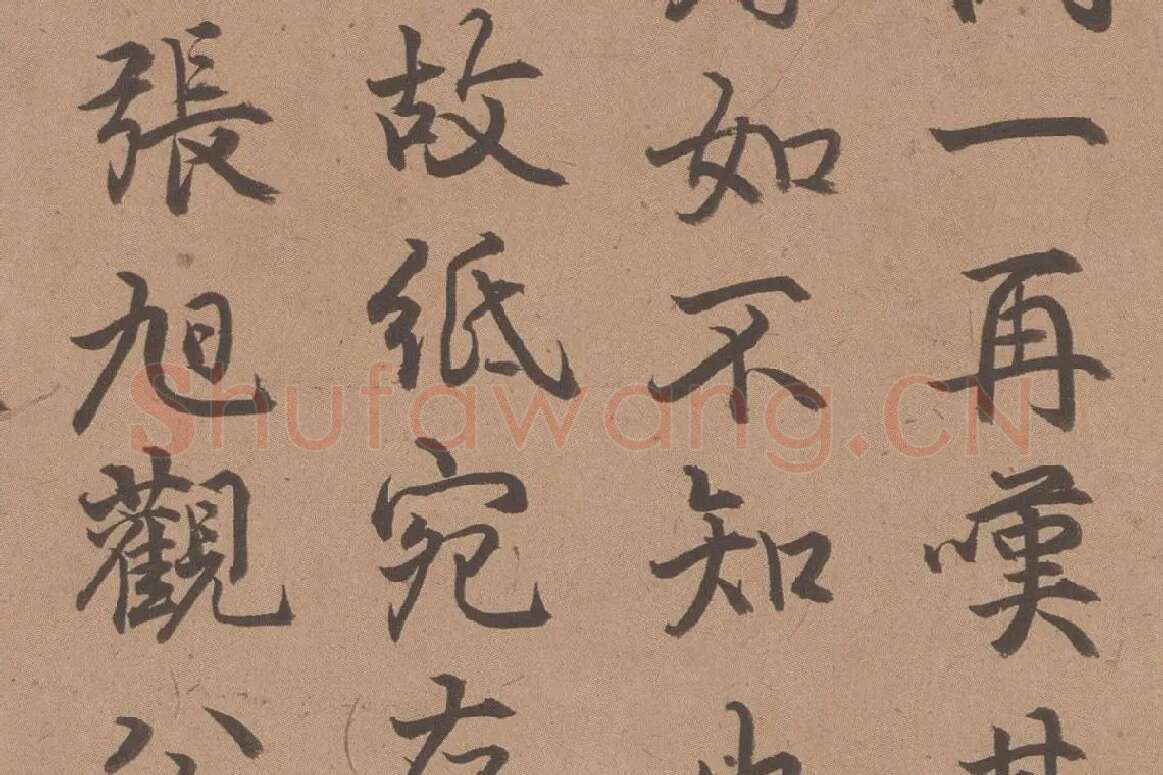 一再嘆
如不知
故紙宛
張旭觀公
Shufawang.CN